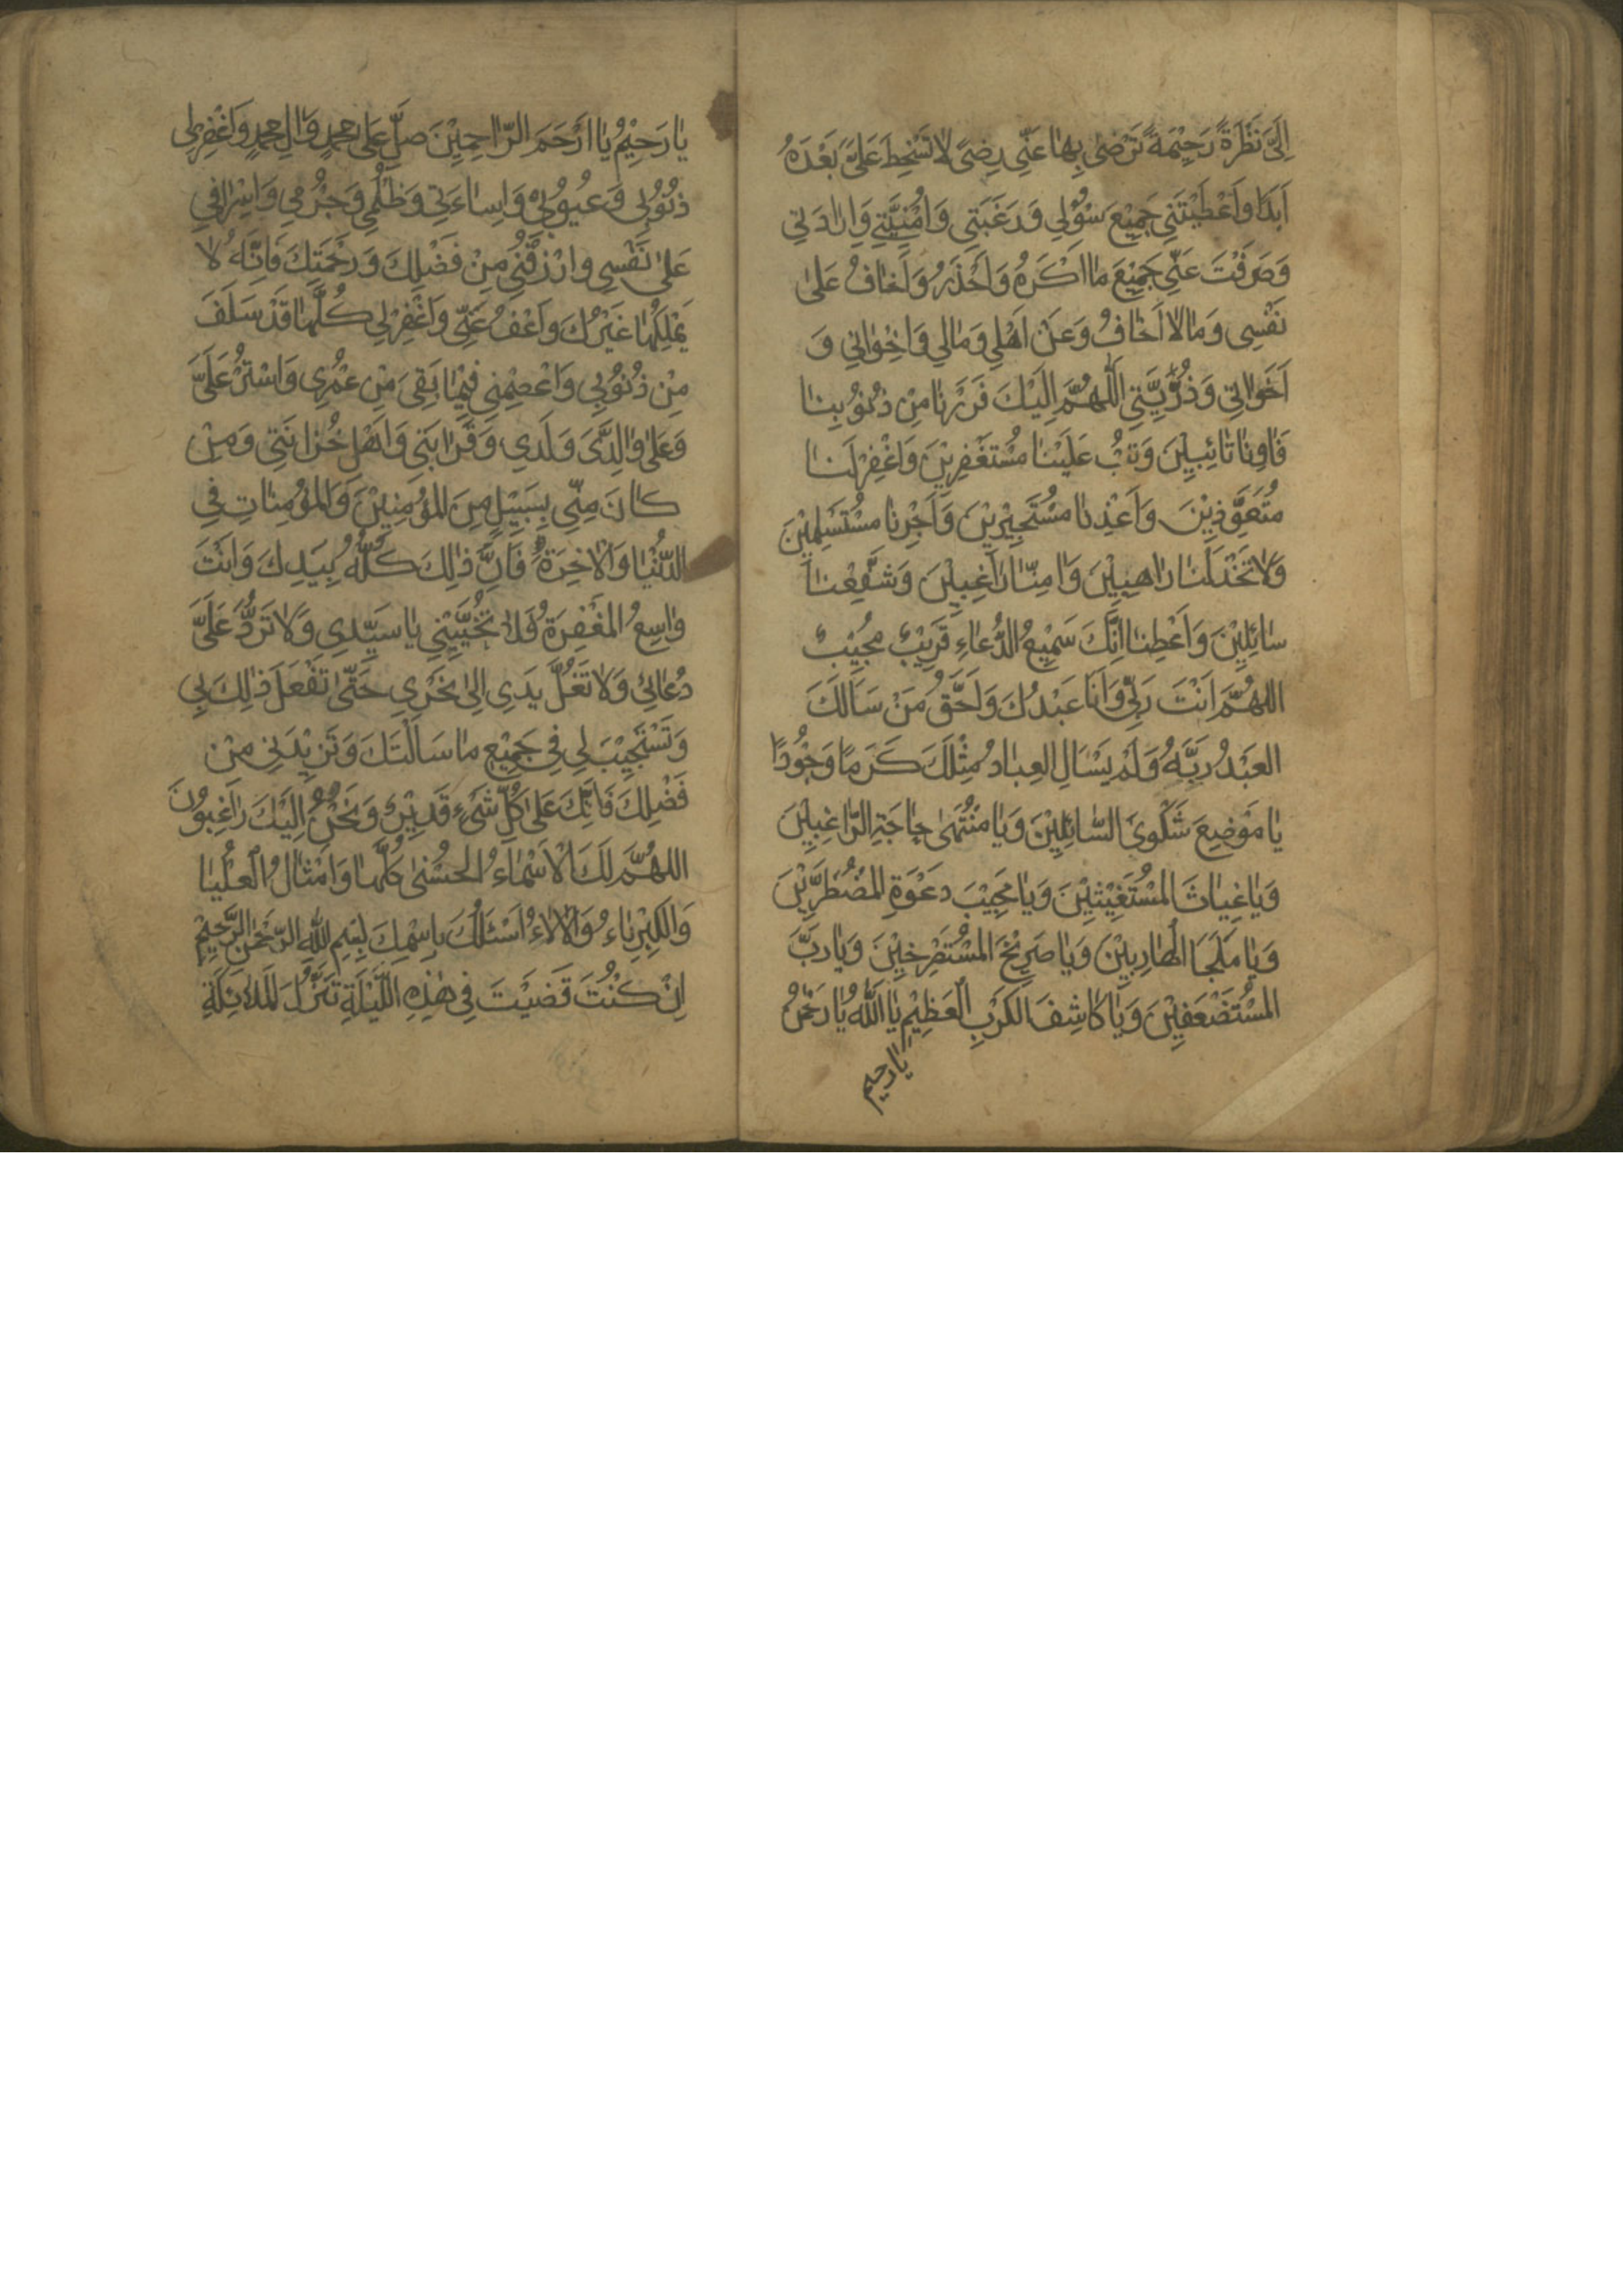 اِلَيَّ نَظْرَةً رَحِيْمَةً تَرْضىٰ بِهٰا عَنّي رِضىً لاٰ تَسْخَطُ عَلَيَّ بَعْدَهُ
اَبَدًا وَاَعْطَيْتَني جَميْعَ سُؤْلي وَرَغْبَتي وَاُمْنِيَّتي وَاِرٰادَتي
وَصَرَفْتَ عَنّي جَميْعَ مٰا اَكْرَهُ وَاَحْذَرُ وَاَخٰافُ عَلىٰ
نَفْسِي وَمٰا لاٰ اَخٰافُ وَعَنْ اَهْلي وَمٰالي وَاِخْوٰاني وَ
اَخَوٰاتي وَذُرِّيَّتي اَللّٰهُمَّ اِلَيْكَ فَرَرْنٰا مِنْ ذُنُوْبِنٰا
فَاٰوِنٰا تٰائِبيْنَ وَتُبْ عَلَيْنٰا مُسْتَغْفِريْنَ وَاغْفِرْ لَنٰا
مُتَعَوِّذِيْنَ وَاَعِذْنٰا مُسْتَجيْرِيْنَ وَاَجِرْنٰا مُسْتَسْلِميْنَ
وَلاٰ تَخْذُلْنٰا رٰاهِبيْنَ وَاٰمِنّٰا رٰاغِبيْنَ وَشَفِّعْنٰا
سٰائِليْنَ وَاَعْطِنٰا اِنَّكَ سَمِيْعُ الدُّعٰاءِ قَريْبٌ مُجيْبٌ
اللّهُمَّ اَنْتَ رَبّي وَاَنَا عَبْدُكَ وَاَحَقُّ مَنْ سَاَلَكَ
العَبْدُ رَبَّهُ وَلَمْ يَسْاَلِ العِبٰادُ مِثْلَكَ كَرَمًا وَجُوْدًا
يٰا مَوْضِعَ شَكْوىٰ السّٰائِليْنَ وَيٰا مُنْتَهىٰ حٰاجَةِ الرّٰاغِبيْنَ
وَيٰا غِيٰاثَ المُسْتَغيْثيْنَ وَيٰا مُجِيْبَ دَعْوَةِ المُضْطَرّيْنَ
وَيٰا مَلْجَاَ الهٰارِبيْنَ وَيٰا صَريْخَ المُسْتَصْرِخيْنَ وَيٰا رَبَّ
المُسْتَضْعَفيْنَ وَيٰا كٰاشِفَ الكَرْبِ العَظِيْمِ يٰا اَللّٰهُ يٰا رَحْمٰنُ
يٰا رحيم
يٰا رَحِيْمُ يٰا اَرْحَمَ الرّٰاحِميْنَ صَلِّ عَلىٰ محمدٍ وَاٰلِ محمدٍ وَاغْفِرْ لي
ذُنُوْبي وَعُيُوْبي وَاِسٰاءَتي وَظُلْمي وَجُرْمي وَاِسْرٰافي
عَلىٰ نَفْسي وارْزُقْني مِنْ فَضْلِكَ وَرَحْمَتِكَ فَاِنَّهُ لاٰ
يَمْلِكُهٰا غَيْرُكَ وَاعْفُ عَنّي وَاغْفِرْ لي كُلَّمٰا قَدْ سَلَفَ
مِنْ ذُنُوْبي وَاعْصِمْني فيْمٰا بَقِيَ مِنْ عُمْري وَاسْتُرْ عَلَيَّ
وَعَلىٰ وٰالِدَيَّ وَلَدي وَقَرٰابَتي وَاَهْلِ حُزٰانَتي وَمَنْ
كٰانَ مِنّي بِسَبيْلٍ مِنَ المُؤْمِنيْنَ وَالمُؤْمِنٰاتِ في
الدُّنْيٰا وَالْاٰخِرَةِ فَاِنَّ ذٰلِكَ كُلَّهُ بِيَدِكَ وَاَنْتَ
وٰاسِعُ المَغْفِرَةِ فَلاٰ تُخَيِّبْني يٰا سَيِّدي وَلاٰ تَرُدَّ عَلَيَّ
دُعٰائي وَلاٰ تَغُلَّ يَدي اِلىٰ نَحْري حَتّىٰ تَفْعَلَ ذٰلِكَ بي
وَتَسْتَجيْبَ لي في جَميْعِ مٰا سَاَلْتُكَ وَتَزيْدَني مِنْ
فَضْلِكَ فَاِنَّكَ عَلىٰ كُلِّ شَيْءٍ قَديْرٌ وَنَحْنُ اِلَيْكَ رٰاغِبُوْنَ
اللّهُمَّ لَكَ الْاَسْمٰاءُ الحُسْنىٰ كُلُّهٰا وَامْثٰالُ الْعُلْيٰا
وَالكِبْرِيٰاءُ وَالْاٰلاٰءُ اَسْئَلُكَ بِاسْمِكَ بِسْمِ اللّٰهِ الرَّحْمٰنِ الرَّحيْمِ
اِنْ كُنْتَ قَضَيْتَ في هٰذِهِ اللَّيْلَةِ تَنَزُّلَ المَلاٰئِكَةِ